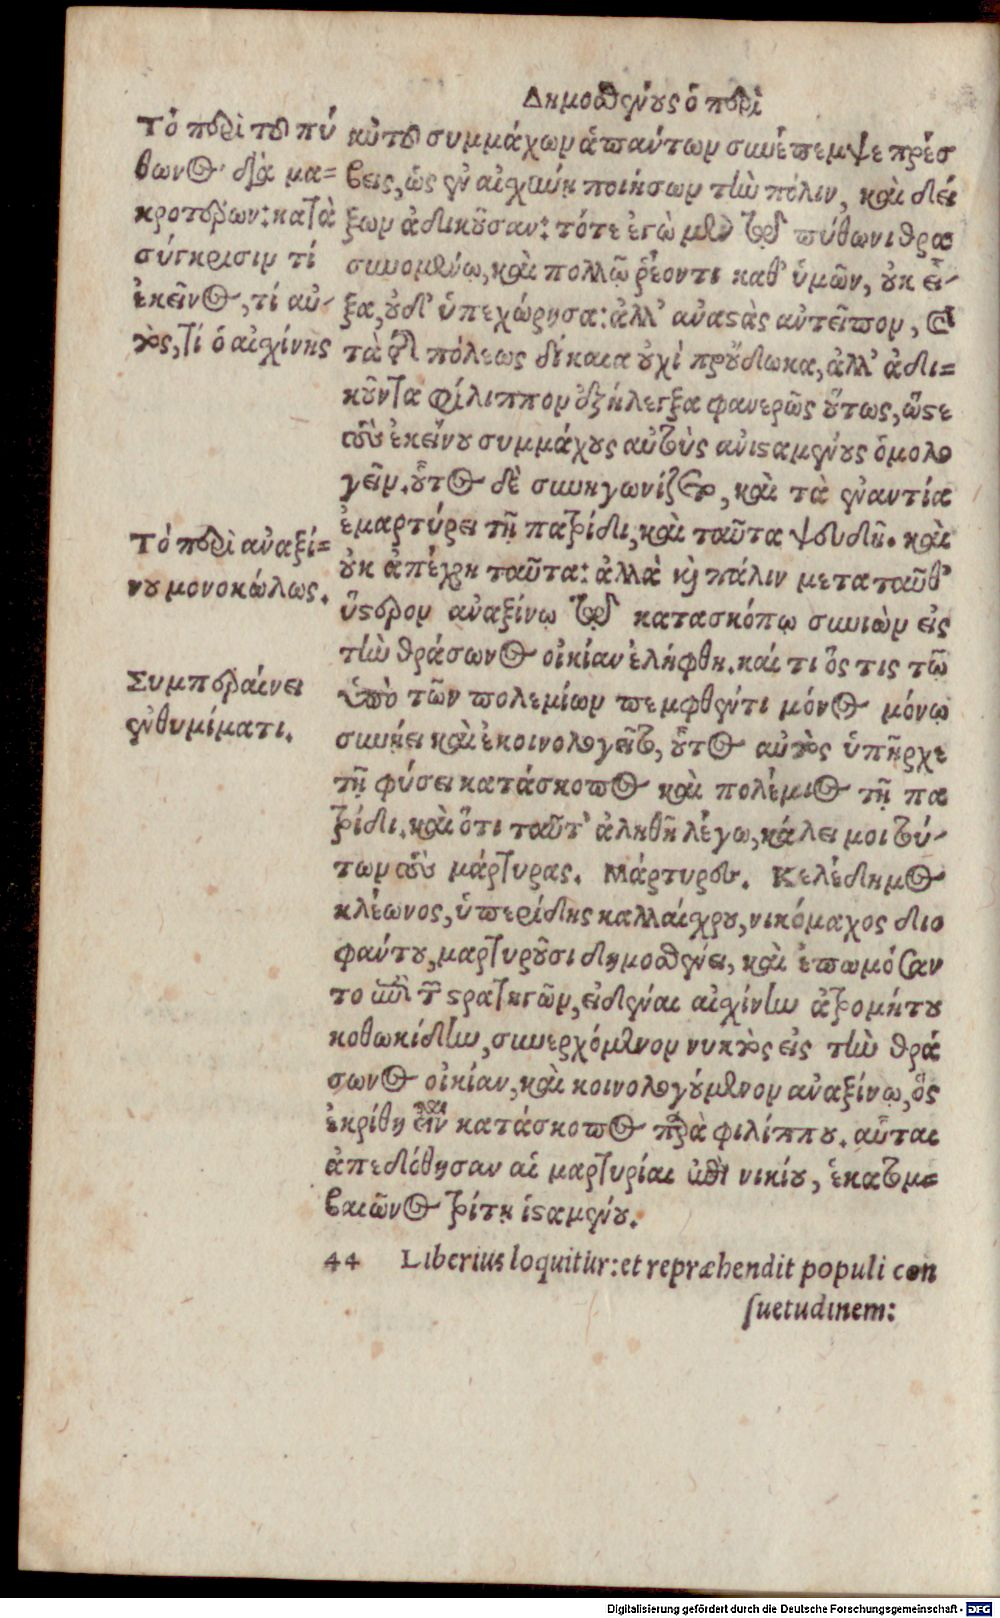 Δημοσθένους ὁ περὶ
Τὸ περὶ τοῦ πύ
θωνος διὰ μα-
κροτέρων: κατὰ
σύγκρισιμ τί
ἐκεῖνος, τί αὐ-
τὸς, τί ὁ αἰχίνης
κὠτοῦ συμμάχωμ ἁπαύτωμ συνέπεμψε πρέσ
βεις, ὡς ἐν αἰχύνῃ ποιήσωμ τὴν πόλιν, καὶ δεί
ξωμ ἀδικοῦσαν: τότε ἐγὼ μὲν τῷ πύθωνι θρα
συνομένῳ, καὶ πολλῷ ῥέοντι καθ' ὑμῶν, οὐκ εἶ-
ξα, οὐδ' ὑπεχώρησα: ἀλλ' ἀναστὰς ἀντεῖπομ, καὶ
τὰ τῆς πόλεως δίκαια οὐχὶ προὔδωκα, ἀλλ' ἀδι-
κοῦντα φίλιππομ ἐξήλεγξα φανερῶς οὕτως, ὥστε
τοὺς ἐκείνου συμμάχους αὐτοὺς ἀνισταμένους ὁμολο
γεῖμ. οὗτος δὲ συνηγωνίζετο, καὶ τὰ ἐναντία
ἐμαρτύρει τῇ πατρίδι, καὶ ταῦτα ψευδῆ. καὶ
οὐκ ἀπέχρη ταῦτα: ἀλλὰ καὶ πάλιν μετα ταῦθ'
ὕστερομ ἀναξίνῳ τῷ κατασκόπῳ συνιὼμ εἰς
τὴν θράσωνος οἰκίαν ἐλήφθη. καί τι ὅς τις τῷ
ὑπὸ τῶν πολεμίωμ πεμφθέντι μόνος μόνῳ
συνῄει καὶ ἐκοινολογεῖτο, οὗτος αὐτὸς ὑπῆρχε
τῇ φύσει κατάσκοπος καὶ πολέμιος τῇ πα
τρίδι. καὶ ὅτι ταῦτ' ἀληθῆ λέγω, κάλει μοι τού-
τωμ τοὺς μάρτυρας. Μάρτυρες. Κελέδημος
κλέωνος, ὑπερίδης καλλαίχρου, νικόμαχος διο
φαύτου, μαρτυροῦσι δημοσθένει, καὶ ἐπωμόσαν
το ἐπὶ τῶν στρατηγῶμ, εἰδέναι αἰχίνην ἀτρομήτου
κοθωκίδην, συνερχόμενομ νυκτὸς εἰς τὴν θρά
σωνος οἰκίαν, καὶ κοινολογούμενομ ἀναξίνῳ, ὅς
ἐκρίθη εἶναι κατάσκοπος παρὰ φιλίππου. αὗται
ἀπεδόθησαν αἱ μαρτυρίαι ἐπὶ νικίου, ἑκατομ-
βαιῶνος τρίτῃ ἱσταμένου.
Τὸ περὶ ἀναξί-
νου μονοκώλως.
Συμπεραίνει
ἐνθυμίματι.
44 Liberius loquitur: et repræhendit populi con
suetudinem:
Digitalisierung gefördert durch die Deutsche Forschungsgemeinschaft - DFG